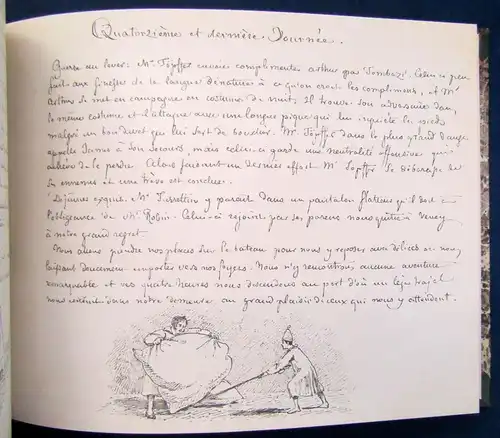 Quatorzième et dernière Journée.
Guerre au lever. Mr Töpffer envoie complimenter Arthur par Tombazi. Celui ci peu
fait aux finesses de la langue dénature à ce qu'on croit les complimens, et Mr
Arthur se met en campagne en costume de nuit. Il trouve son adversaire dans
le même costume et l'attaque avec une longue pique qui lui
malgré un bourdaut qui lui sert de bouclier. Mr Töpffer dans le plus grand danger
appelle à son secours, mais celui-ci garde une neutralité offensive qui
achève de le perdre. Alors faisant un dernier effort Mr Töpffer se débarasse de
ses ennemis et une trève est conclue.
Déjeuner exquis. Mr y parait dans un pantalon flatteur qu'il doit à
l'obligeance de Mr Robin. Celui-ci rejoint par ses parens nous quitte à Vevey
à notre grand regret.
Nous allons prendre nos places sur le bateau pour nous y reposer avec délices en nous
laissant doucement emporter vers nos foyers. Nous n'y rencontrons aucune aventure
remarquable et vers quatre heures nous descendons au port d'où un léger trajet
nous conduit dans notre demeure au grand plaisir de ceux qui nous y attendent.